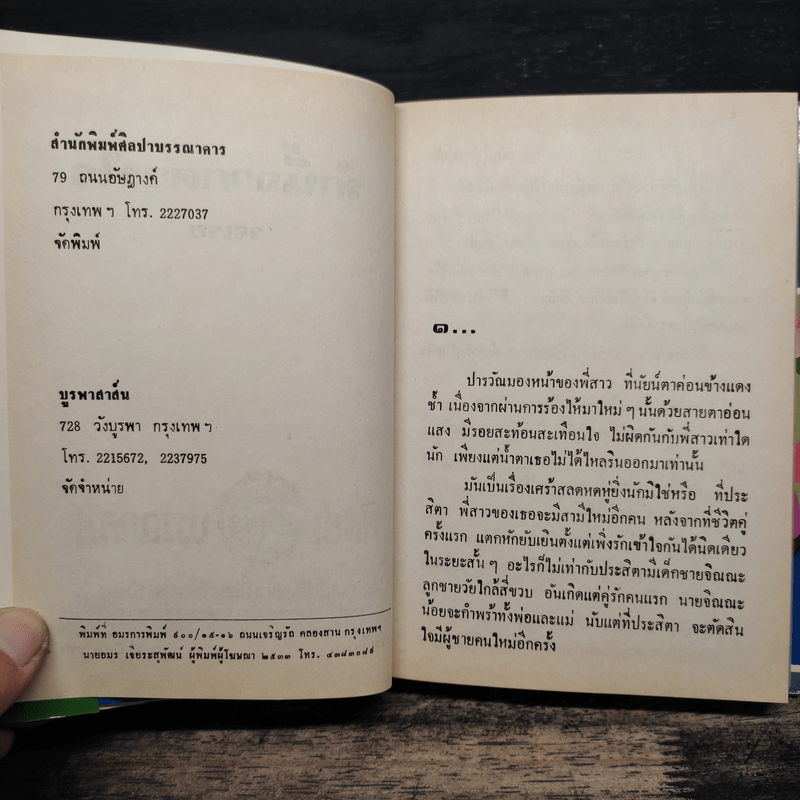 สำนักพิมพ์ศิลปาบรรณาคาร
79 ถนนอัษฎางค์
กรุงเทพ ฯ โทร. 2227037
จัดพิมพ์
บูรพาสาส์น
728 วังบูรพา กรุงเทพ ฯ
โทร. 2215672, 2237975
จัดจำหน่าย
พิมพ์ที่ อมรการพิมพ์ ๙๐๐/๑๕-๑๖ ถนนเจริญรัถ คลองสาน กรุงเทพฯ
นายอมร เจียระสุพัฒน์ ผู้พิมพ์ผู้โฆษณา ๒๕๓๓ โทร. ๔๓๘๓๐๘๙
๑...
ปารวัณมองหน้าของพี่สาว ที่นัยน์ตาค่อนข้างแดง
ช้ำ เนื่องจากผ่านการร้องไห้มาใหม่ ๆ นั้นด้วยสายตาอ่อน
แสง มีรอยสะท้อนสะเทือนใจ ไม่ผิดกันกับพี่สาวเท่าใด
นัก เพียงแต่น้ำตาเธอไม่ได้ไหลรินออกมาเท่านั้น
มันเป็นเรื่องเศร้าสลดหดหู่ยิ่งนักมิใช่หรือ ที่ประ
สิตา พี่สาวของเธอจะมีสามีใหม่อีกคน หลังจากที่ชีวิตคู่
ครั้งแรก แตกหักยับเยินตั้งแต่เพิ่งรักเข้าใจกันได้นิดเดียว
ในระยะสั้น ๆ อะไรก็ไม่เท่ากับประสิตามีเด็กชายจิณณะ
ลูกชายวัยใกล้สี่ขวบ อันเกิดแต่คู่รักคนแรก นายจิณณะ
น้อยจะกำพร้าทั้งพ่อและแม่ นับแต่ที่ประสิตา จะตัดสิน
ใจมีผู้ชายคนใหม่อีกครั้ง